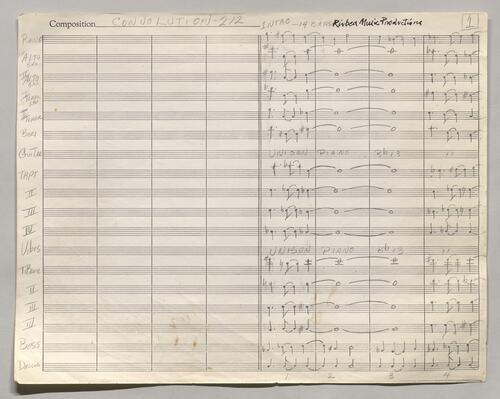 Composition CONVOLUTION - 2/2 INTRO - 14 BARS Rivbea Music Productions 1
Piano
ALTO
ALTO
TENOR
TENOR
BARI
Guitar UNISON PIANO
TRPT
II
III
IV
Vibes UNISON PIANO
T.Bone
II
III
IV
BASS
Drums
1 2 3 4